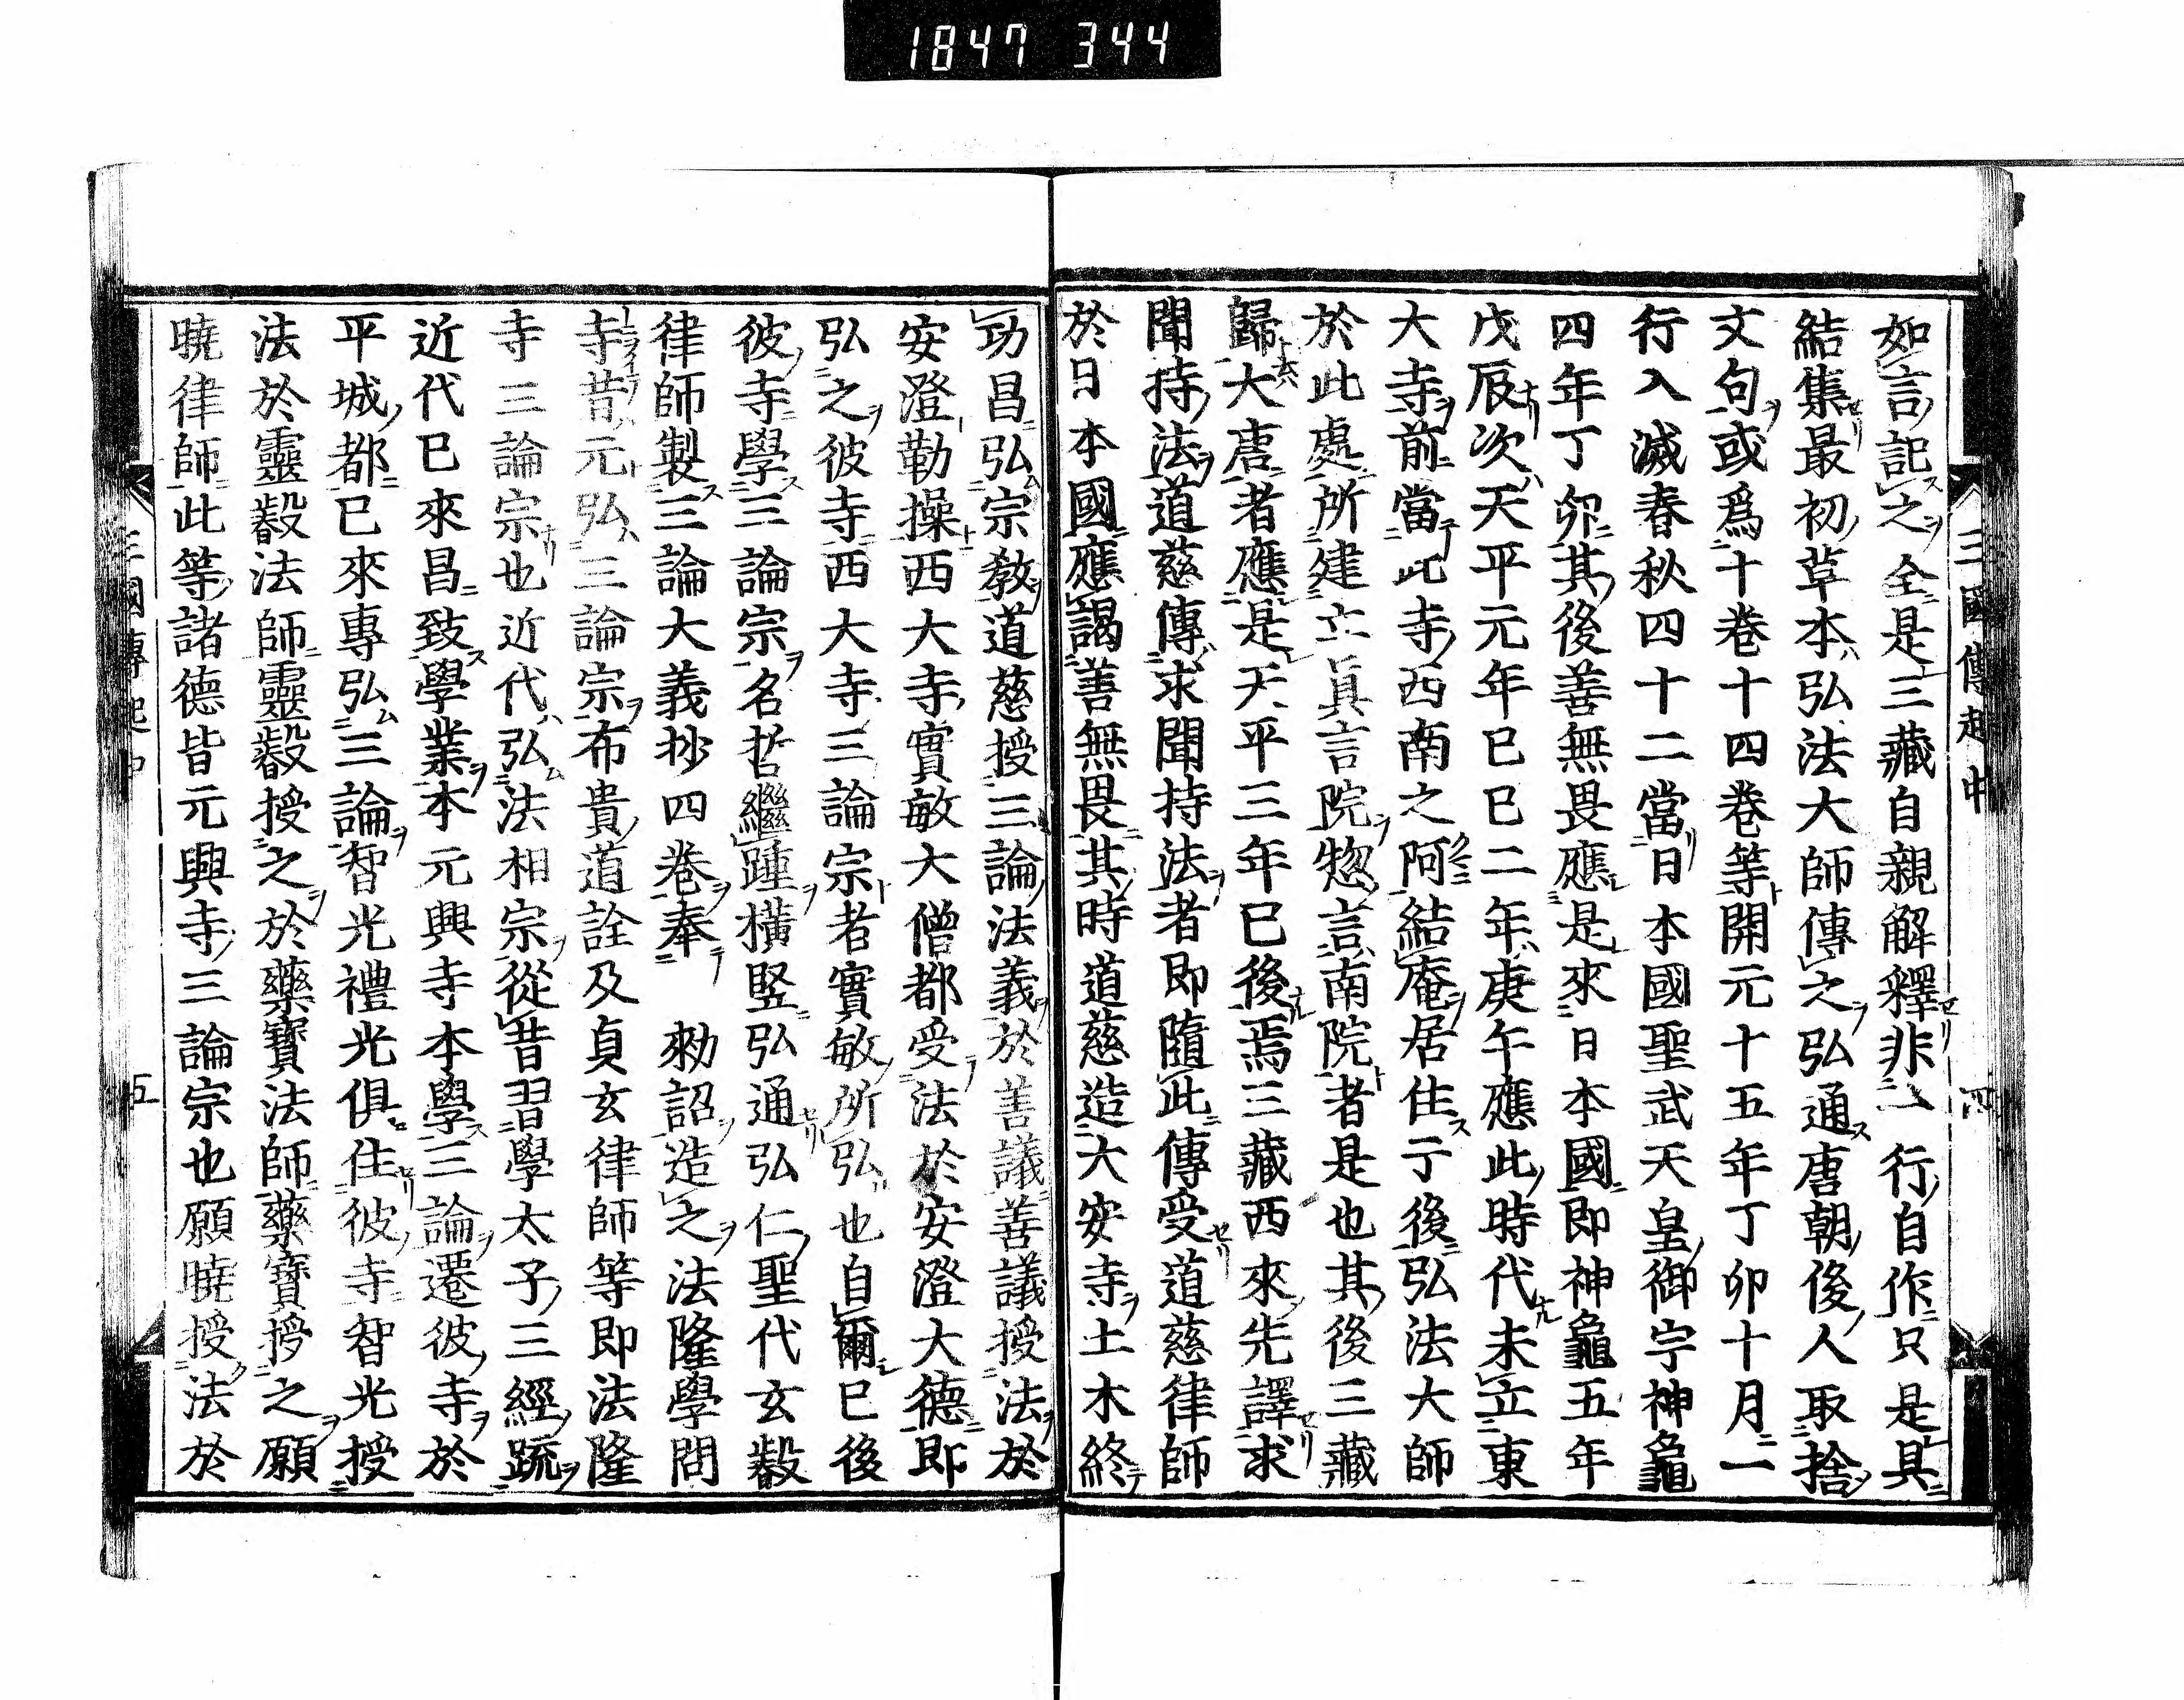 1847 344
三國傳起中 四
如言記之全是三藏自親解釋非一行自作只是具
結集最初草本弘法大師傳之弘通唐朝後人取捨
文句或爲十卷十四卷等開元十五年丁卯十月一
行入滅春秋四十二當日本國聖武天皇御宇神龜
四年丁卯其後善無畏應是來日本國即神龜五年
戊辰次天平元年已巳二年庚午應此時代未立東
大寺前當此寺西南之阿結庵居住于後弘法大師
於此處所建立眞言院惣言南院者是也其後三藏
歸大唐者應是天平三年已後焉三藏西來先譯求
聞持法道慈傳求聞持法者即隨此傳受道慈律師
於日本國應謁善無畏其時道慈造大安寺土木終
功昌弘宗教道慈授三論法義於善議善議授法於
安澄勤操西大寺實敏大僧都受法於安澄大德即
弘之彼寺西大寺三論宗者實敏所弘也自爾已後
彼寺學三論宗名哲繼踵橫竪弘通弘仁聖代玄叡
律師製三論大義抄四卷奉 勑詔造之法隆學問
寺昔元弘三論宗布貴道詮及貞玄律師等即法隆
寺三論宗也近代弘法相宗從昔習學太子三經疏
近代已來昌致學業本元興寺本學三論遷彼寺於
平城都已來專弘三論智光禮光俱住彼寺智光授
法於靈叡法師靈叡授之於藥寶法師藥寶授之願
曉律師此等諸德皆元興寺三論宗也願曉授法於
三國傳起中 五